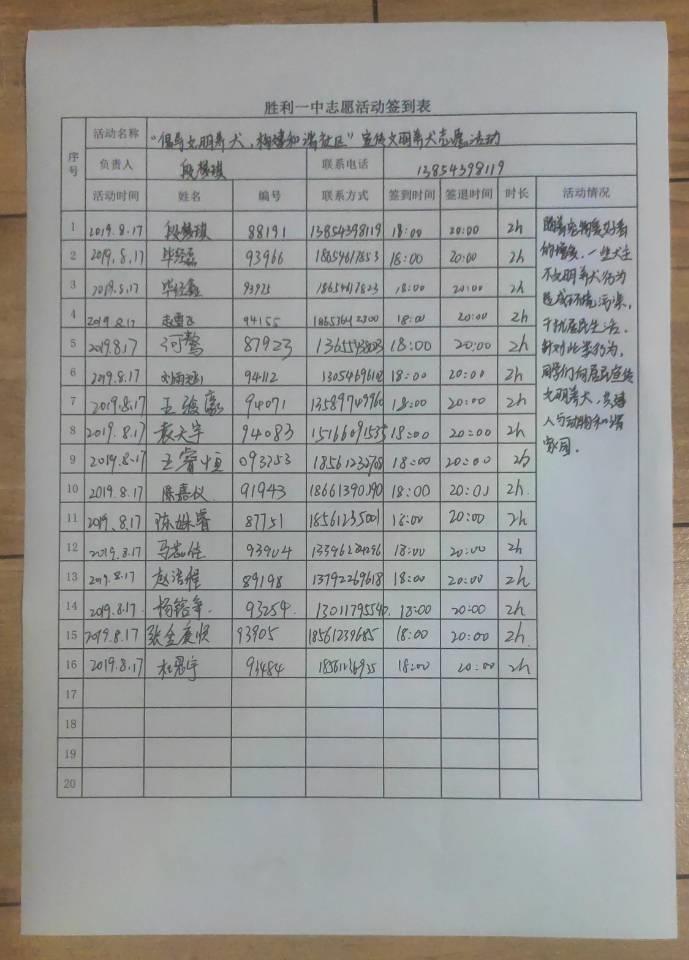 胜利一中志愿活动签到表
序号 活动名称 "倡导文明养犬，构建和谐社区"宣传文明养犬志愿活动
负责人 段 琪 联系电话 13854398119
活动时间 姓名 编号 联系方式 签到时间 签退时间 时长 活动情况
1 2019.8.17 段 琪 88191 13854398119 18:00 20:00 2h
2 2019.8.17 93966 18:00 20:00 2h
3 2019.8.17 18:00 20:00 2h
4 2019.8.17 94155 18:00 20:00 2h
5 2019.8.17 河鳌 87923 18:00 20:00 2h
6 2019.8.17 94112 18:00 20:00 2h
7 2019.8.17 王 94071 13589740960 18:00 20:00 2h
8 2019.8.17 袁大宇 94083 18:00 20:00 2h
9 2019.8.17 王睿恒 093253 18:00 20:00 2h
10 2019.8.17 陈嘉仪 91943 18661390190 18:00 20:00 2h
11 2019.8.17 陈姝睿 87751 18561235001 18:00 20:00 2h
12 2019.8.17 93904 18:00 20:00 2h
13 2019.8.17 赵 89198 13792269618 18:00 20:00 2h
14 2019.8.17. 杨 93254. 13011795540. 18:00 20:00 2h
15 2019.8.17 张 93905 18561239685 18:00 20:00 2h
16 2019.8.17 杜 93484 18:00 20:00 2h
17
18
19
20
随着宠物爱好者
的增多，一些犬主
不文明养犬行为
造成环境污染，
干扰居民生活。
针对此类行为，
同学们向居民宣传
文明养犬，共建
人与动物和谐
家园。